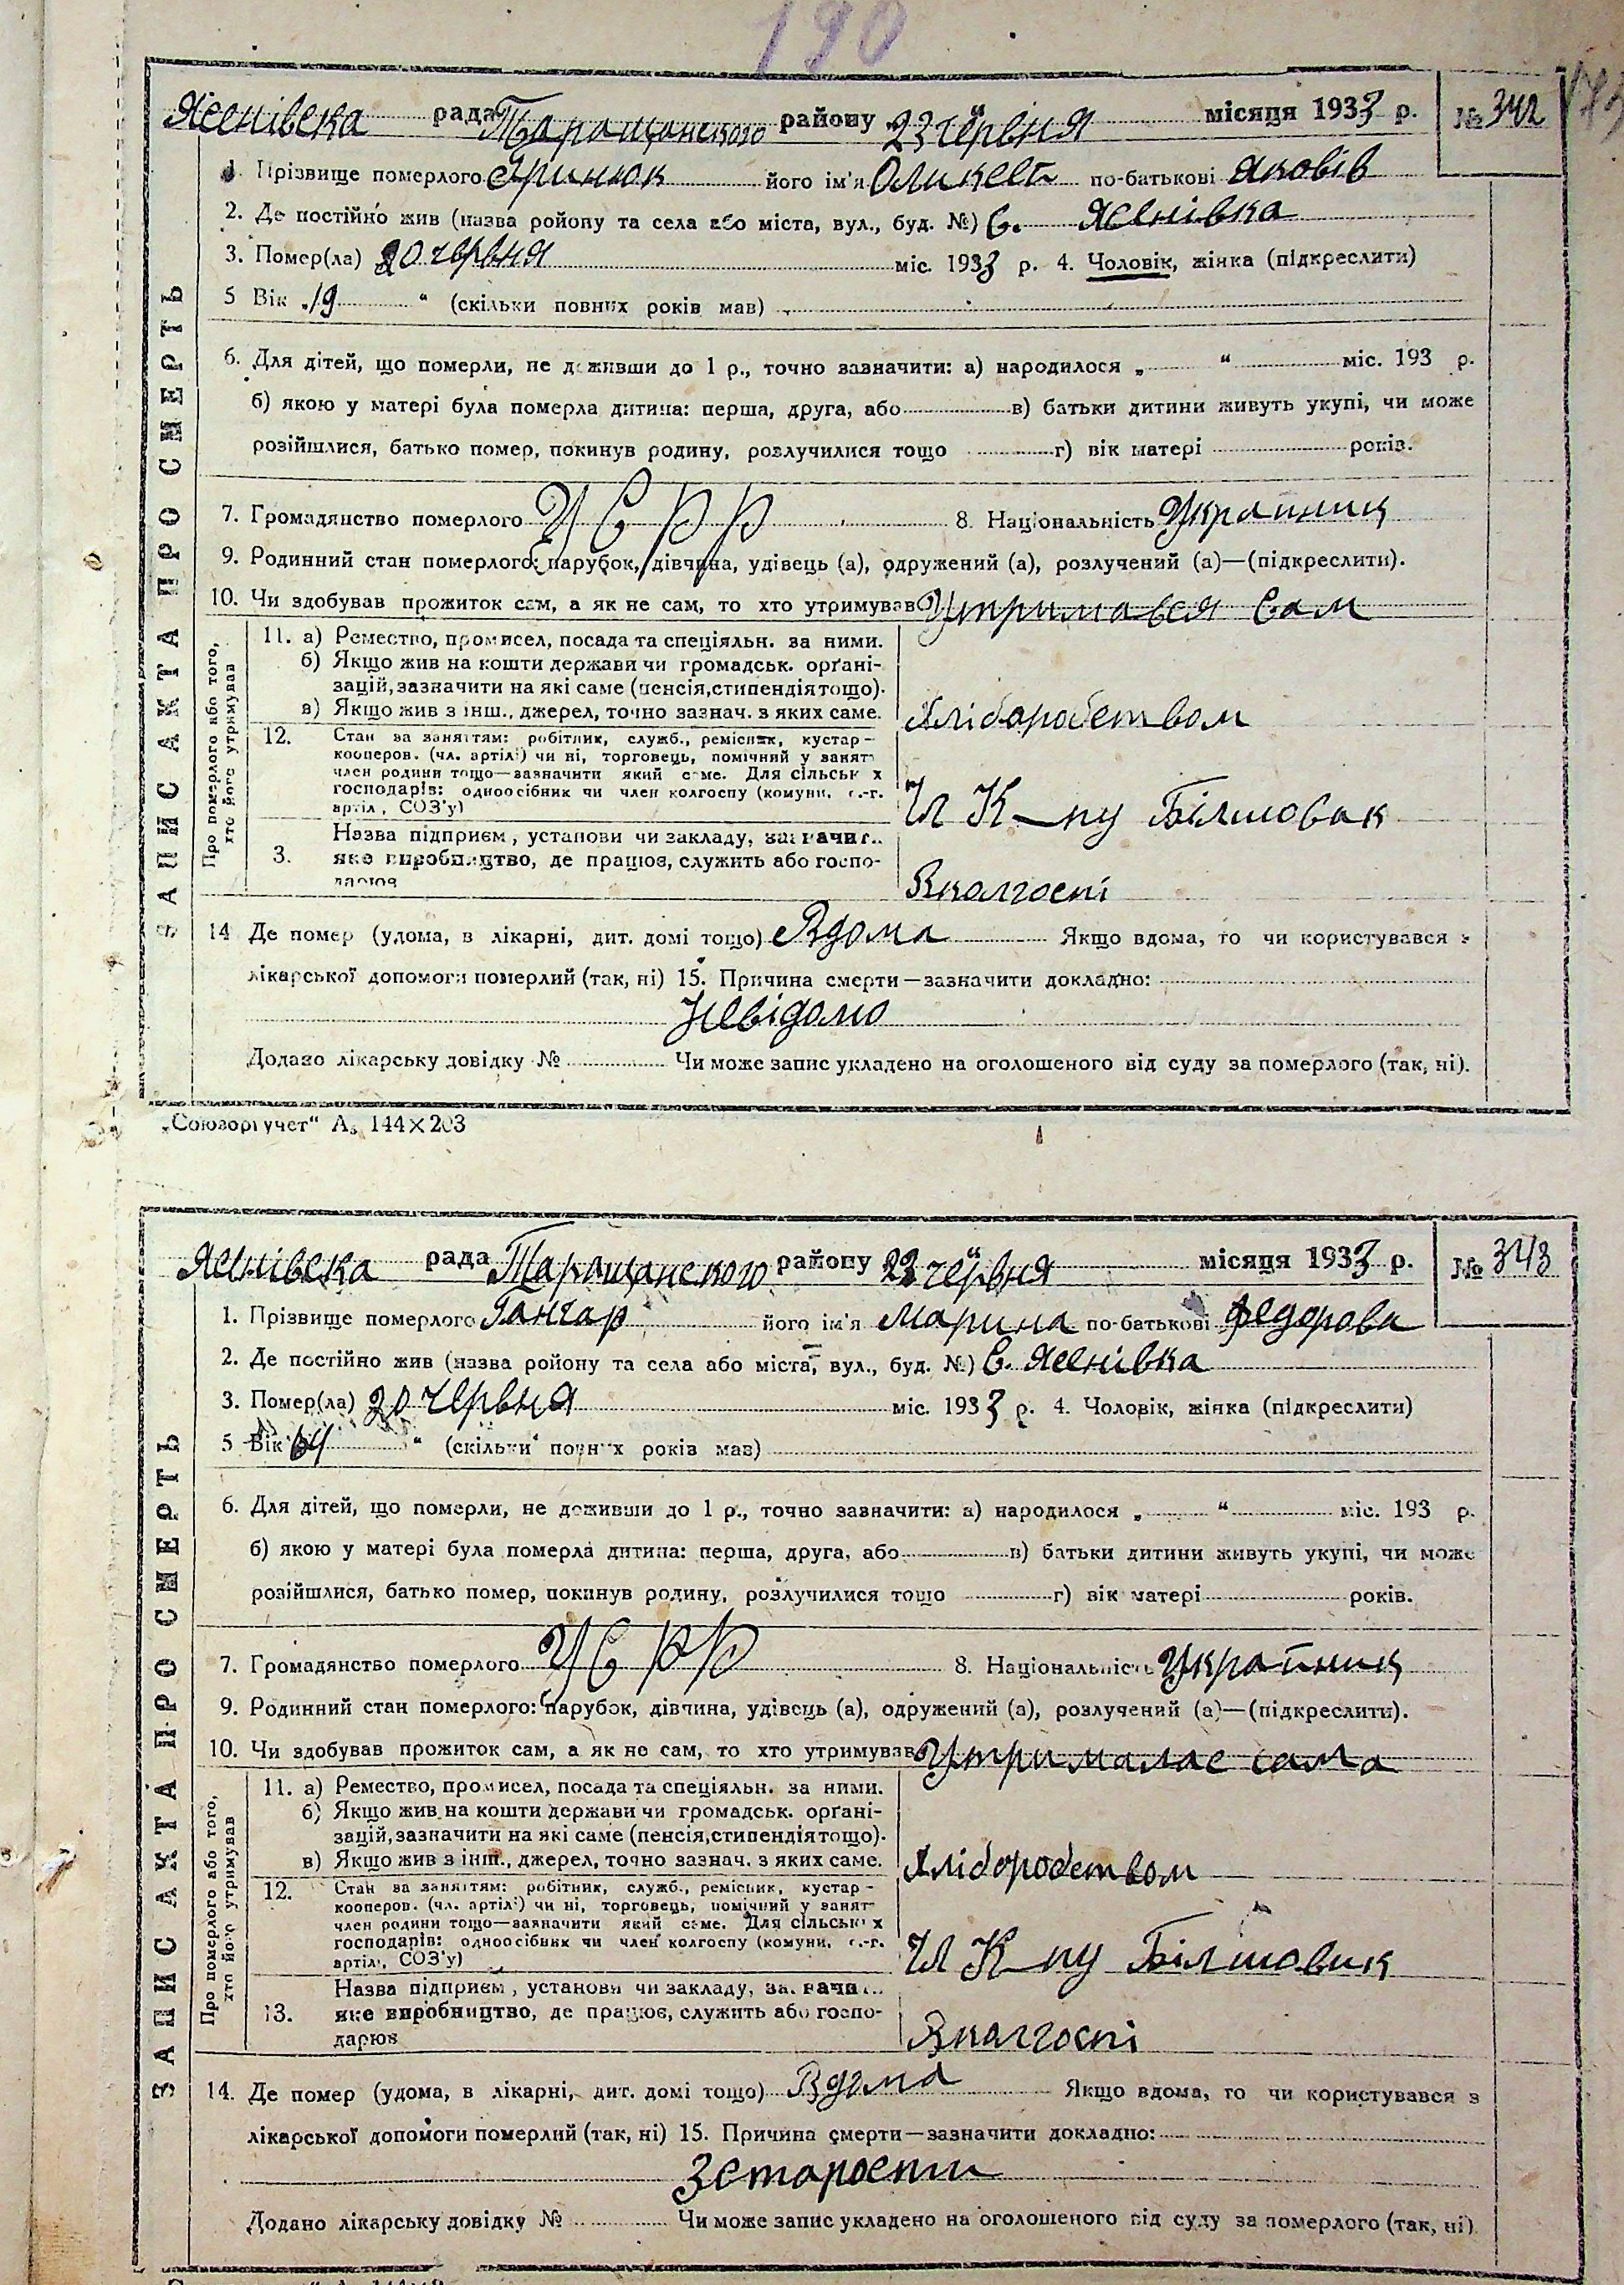 190
Ясенівска рада Таращанского району 23 червня місяця 1933 р. № 342
1. Прізвище померлого Гринюк його ім'я Оликсей по-батькові Яковів
2. Де постійно жив (назва ройону та села або міста, вул., буд. №) С. Ясенівка
3. Помер(ла) 20 червня міс. 1933 р. 4. Чоловік, жінка (підкреслити)
5 Вік 19 " (скільки повних років мав)
6. Для дітей, що померли, не доживши до 1 р., точно зазначити: а) народилося „ “ міс. 193 р.
б) якою у матері була померла дитина: перша, друга, або в) батьки дитини живуть укупі, чи може
розійшлися, батько помер, покинув родину, розлучилися тощо г) вік матері років.
7. Громадянство померлого УСРР 8. Національність Украиниц
9. Родинний стан померлого: парубок, дівчина, удівець (а), одружений (а), розлучений (а)—(підкреслити).
10. Чи здобував прожиток сам, а як не сам, то хто утримував Утримався сам
Про померлого або того, хто його утримував
11. а) Ремество, промисел, посада та спеціяльн. за ними.
б) Якщо жив на кошти держави чи громадськ. орґані-
зацій, зазначити на які саме (пенсія, стипендія тощо).
в) Якщо жив з інш., джерел, точно зазнач. з яких саме. Хліборобством
12. Стан за заняттям: робітник, служб., ремісник, кустар-
кооперов. (чл. артілі) чи ні, торговець, помічний у занят
член родини тощо—зазначити який саме. Для сільськ х
господарів: одноосібник чи член колгоспу (комуни, с.-г.
артіл, СОЗ'у) Чл К-пу Білшовак
3. Назва підприєм, установи чи закладу, зазначит..
яке виробництво, де працює, служить або госпо-
дарює Вколгоспі
14 Де помер (удома, в лікарні, дит. домі тощо) Вдома Якщо вдома, то чи користувався з
лікарської допомоги померлий (так, ні) 15. Причина смерти—зазначити докладно:
Невідомо
Додано лікарську довідку № Чи може запис укладено на оголошеного від суду за померлого (так, ні).
ЗАПИС АКТА ПРО СМЕРТЬ
„Союзоргучет“ А₅ 144×203
Ясенівска рада Таращанского району 23 червня місяця 1933 р. № 343
1. Прізвище померлого Ганчар його ім'я Марина по-батькові Федорова
2. Де постійно жив (назва ройону та села або міста, вул., буд. №) С. Ясенівка
3. Помер(ла) 20 червня міс. 1933 р. 4. Чоловік, жінка (підкреслити)
5 Вік 64 " (скільки повних років мав)
6. Для дітей, що померли, не доживши до 1 р., точно зазначити: а) народилося „ “ міс. 193 р.
б) якою у матері була померла дитина: перша, друга, або в) батьки дитини живуть укупі, чи може
розійшлися, батько помер, покинув родину, розлучилися тощо г) вік матері років.
7. Громадянство померлого УСРР 8. Національність Украйниц
9. Родинний стан померлого: парубок, дівчина, удівець (а), одружений (а), розлучений (а)—(підкреслити).
10. Чи здобував прожиток сам, а як не сам, то хто утримував Утрималас сама
Про померлого або того, хто його утримував
11. а) Ремество, промисел, посада та спеціяльн. за ними.
б) Якщо жив на кошти держави чи громадськ. орґані-
зацій, зазначити на які саме (пенсія, стипендія тощо).
в) Якщо жив з інш., джерел, точно зазнач. з яких саме. Хліборобством
12. Стан за заняттям: робітник, служб., ремісник, кустар-
кооперов. (чл. артілі) чи ні, торговець, помічний у занят
член родини тощо—зазначити який саме. Для сільськ х
господарів: одноосібник чи член колгоспу (комуни, с.-г.
артіл, СОЗ'у) Чл К-пу Білшовик
13. Назва підприєм, установи чи закладу, зазначи...
яке виробництво, де працює, служить або госпо-
дарює Вколгоспі
14. Де помер (удома, в лікарні, дит. домі тощо) Вдома Якщо вдома, то чи користувався з
лікарської допомоги померлий (так, ні) 15. Причина смерти—зазначити докладно:
Зстарости
Додано лікарську довідку № Чи може запис укладено на оголошеного від суду за померлого (так, ні)
ЗАПИС АКТА ПРО СМЕРТЬ